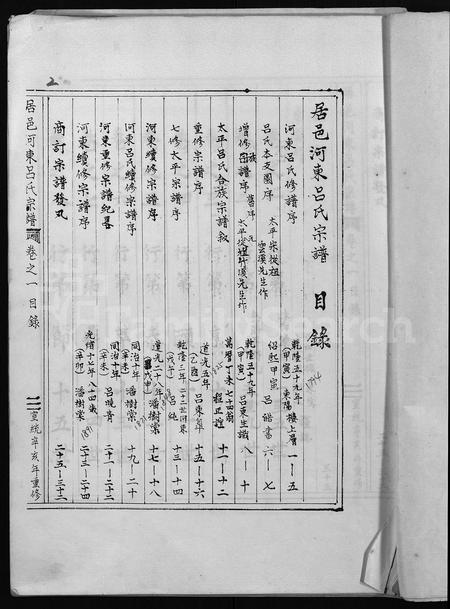 居邑河東呂氏宗譜 目錄
河東呂氏修譜序 乾隆五十九年(甲寅) 東陽樓上層 一—五
1794
呂氏本支圖序 太平宗從祖雲溪先生作 紹熙甲寅 呂皓書 六—七
增修族譜舊序 太平從祖竹溪先生作 乾隆五十九年(甲寅) 呂東生識 八—十
太平呂氏合族宗譜敘 萬曆丁未七十四翁 程正誼 十一—十二
重修宗譜序 道光五年(乙酉) 呂東皐 十五—十六
七修太平宗譜序 乾隆三年(戊午) 呂純 十三—十四
河東續修宗譜序 道光二十八年(戊申) 潘樹棠 十七—十八
河東呂氏續修宗譜序 同治十年(辛未) 潘樹棠 十九—二十
河東重修宗譜紀畧 同治十年(辛未) 呂曉青 二十一—二十二
河東續修宗譜序 光緒十七年(辛卯) 八十四歲 潘樹棠 二十三—二十四
1891
商訂宗譜發凡 二十五—三十二
居邑河東呂氏宗譜 卷之一 目錄
二 宣統辛亥年重修
2